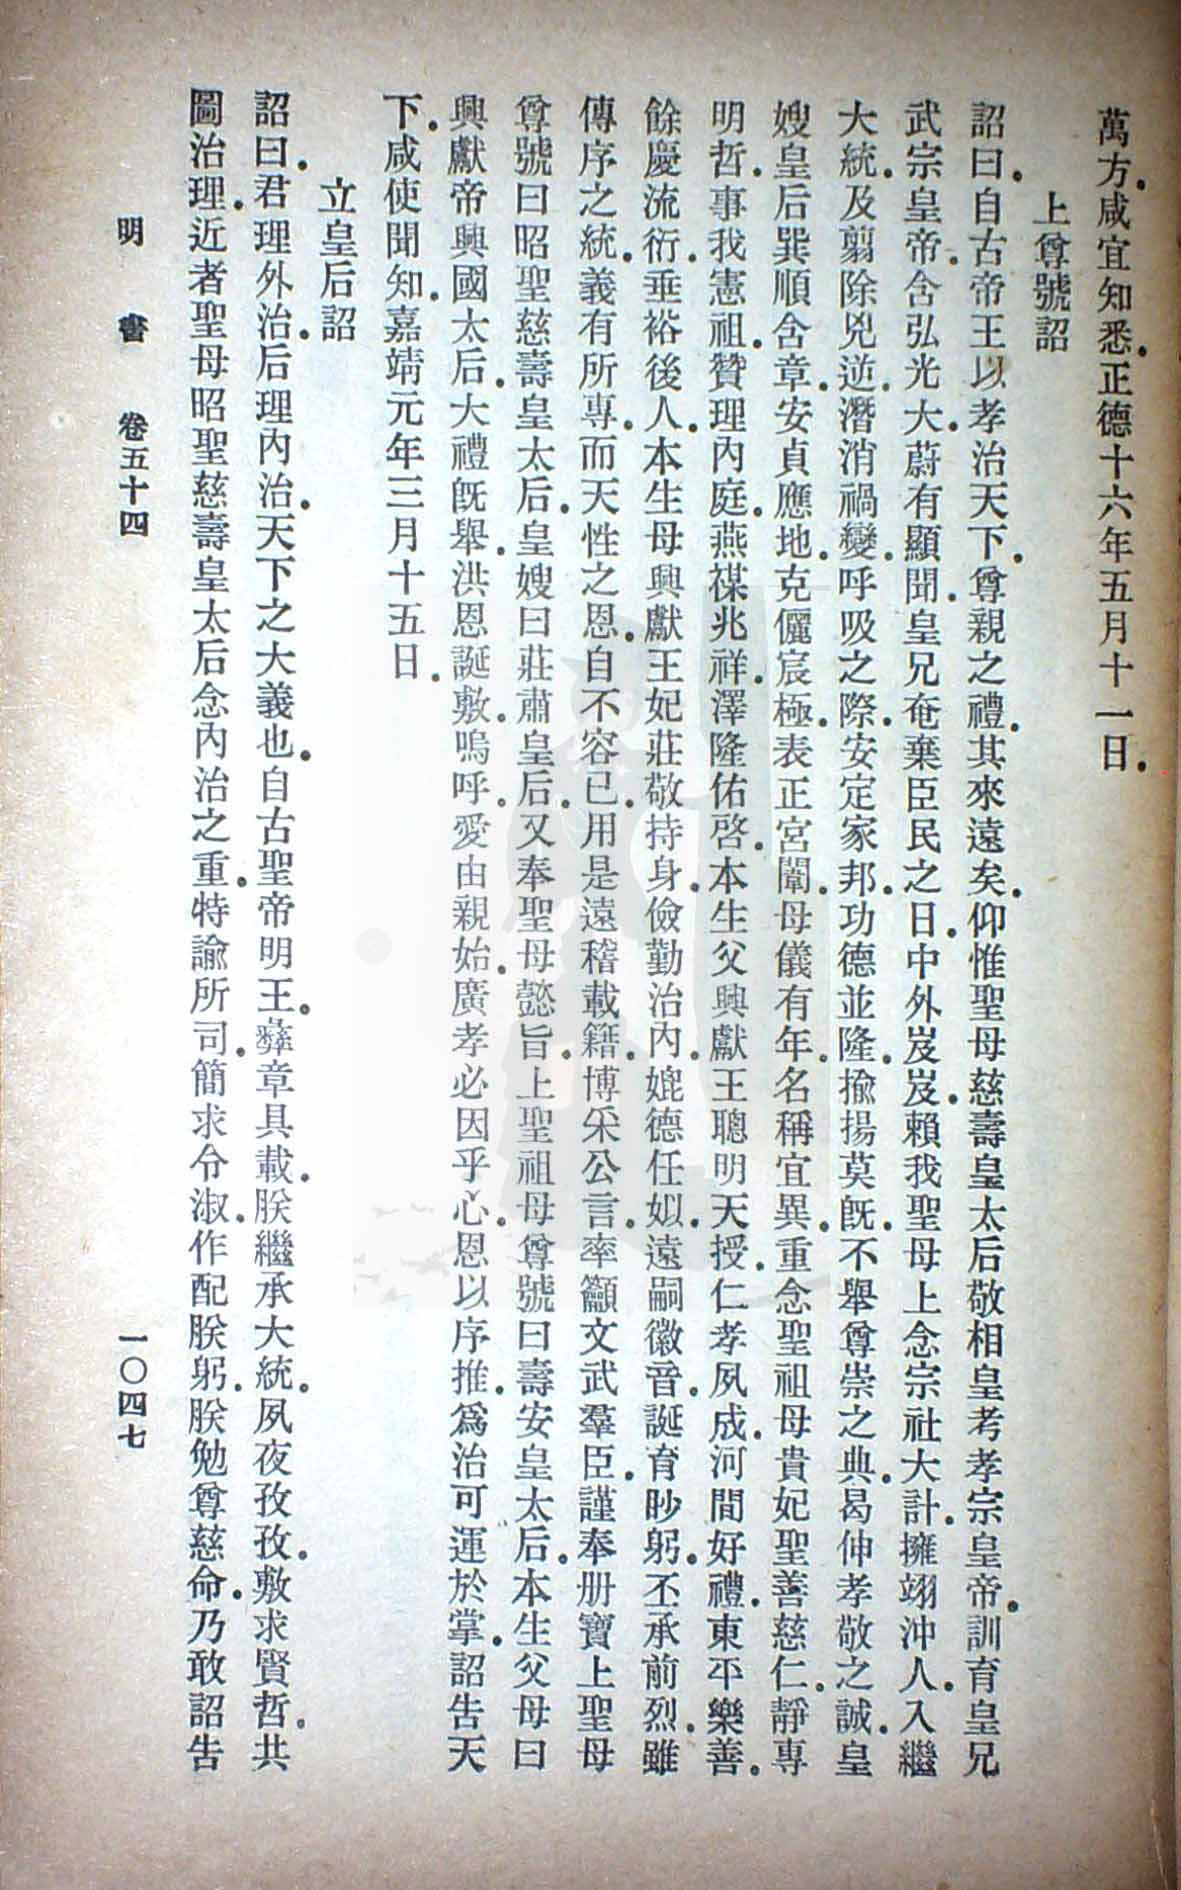 萬方．咸宜知悉．正德十六年五月十一日．
上尊號詔
詔曰．自古帝王以孝治天下．尊親之禮．其來遠矣．仰惟聖母慈壽皇太后敬相皇考孝宗皇帝．訓育皇兄
武宗皇帝．含弘光大．蔚有顯聞．皇兄奄棄臣民之日．中外岌岌．賴我聖母上念宗社大計．擁翊沖人．入繼
大統．及翦除兇逆．潛消禍變．呼吸之際．安定家邦．功德並隆．揄揚莫既．不舉尊崇之典．曷伸孝敬之誠．皇
嫂皇后巽順含章．安貞應地．克儷宸極．表正宮闈．母儀有年．名稱宜異．重念聖祖母貴妃聖善慈仁．靜專
明哲．事我憲祖．贊理內庭．燕禖兆祥．澤隆佑啓．本生父興獻王聰明天授．仁孝夙成．河間好禮．東平樂善．
餘慶流衍．垂裕後人．本生母興獻王妃莊敬持身．儉勤治內．媲德任姒．遠嗣徽音．誕育眇躬．丕承前烈．雖
傳序之統．義有所專．而天性之恩．自不容已．用是遠稽載籍．博采公言．率籲文武羣臣．謹奉册寶上聖母
尊號曰昭聖慈壽皇太后．皇嫂曰莊肅皇后．又奉聖母懿旨．上聖祖母尊號曰壽安皇太后．本生父母曰
興獻帝興國太后．大禮旣舉．洪恩誕敷．嗚呼．愛由親始．廣孝必因乎心．恩以序推．爲治可運於掌．詔告天
下．咸使聞知．嘉靖元年三月十五日．
立皇后詔
詔曰．君理外治．后理內治．天下之大義也．自古聖帝明王．彝章具載．朕繼承大統．夙夜孜孜．敷求賢哲．共
圖治理．近者聖母昭聖慈壽皇太后念內治之重．特諭所司．簡求令淑．作配朕躬．朕勉尊慈命．乃敢詔告
明書 卷五十四 一〇四七